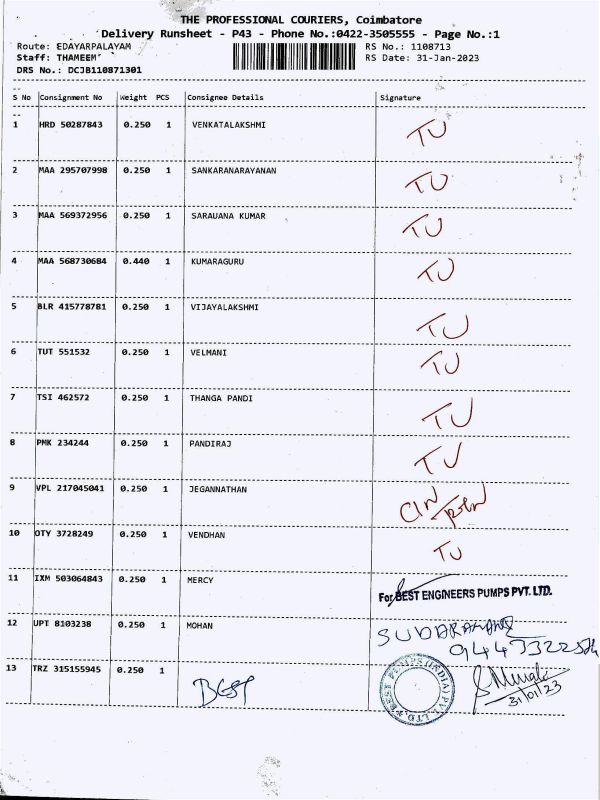 THE PROFESSIONAL COURIERS, Coimbatore
Delivery Runsheet - P43 - Phone No.:0422-3505555 - Page No.:1
Route: EDAYARPALAYAM RS No.: 1108713
Staff: THAMEEM RS Date: 31-Jan-2023
DRS No.: DCJB110871301
S No Consignment No Weight PCS Consignee Details Signature
1 HRD 50287843 0.250 1 VENKATALAKSHMI TU
2 MAA 295707998 0.250 1 SANKARANARAYANAN TU
3 MAA 569372956 0.250 1 SARAUANA KUMAR TU
4 MAA 568730684 0.440 1 KUMARAGURU TU
5 BLR 415778781 0.250 1 VIJAYALAKSHMI TU
6 TUT 551532 0.250 1 VELMANI TU
7 TSI 462572 0.250 1 THANGA PANDI TU
8 PMK 234244 0.250 1 PANDIRAJ TU
9 VPL 217045041 0.250 1 JEGANNATHAN
10 OTY 3728249 0.250 1 VENDHAN TU
11 IXM 503064843 0.250 1 MERCY For BEST ENGINEERS PUMPS PVT. LTD.
12 UPT 8103238 0.250 1 MOHAN
13 TRZ 315155945 0.250 1 BEST BEST PUMPS (INDIA) PVT. LTD.
31/01/23